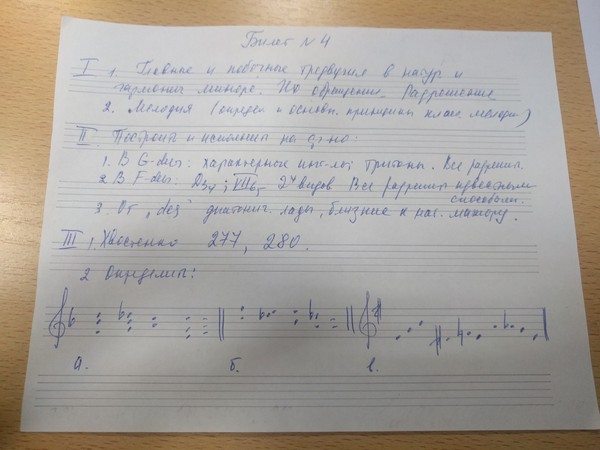 Билет № 4
I 1. Главные и побочные трезвучия в натур и
гармонич миноре. Их обращения. Разрешение
2. Мелодия (определ и основн. принципы класс мелодии)
II Построить и исполнить на ф-но:
1. В G-dur: характерные инт-лы, тритоны. Все разрешит.
2 В F-dur: D3/4; VII6/5 2х видов Все разрешить известными
способами.
3. От "des" диатонич. лады, близкие к нат. мажору.
III 1. Хвостенко 277, 280.
2 Определить:
а. б. в.